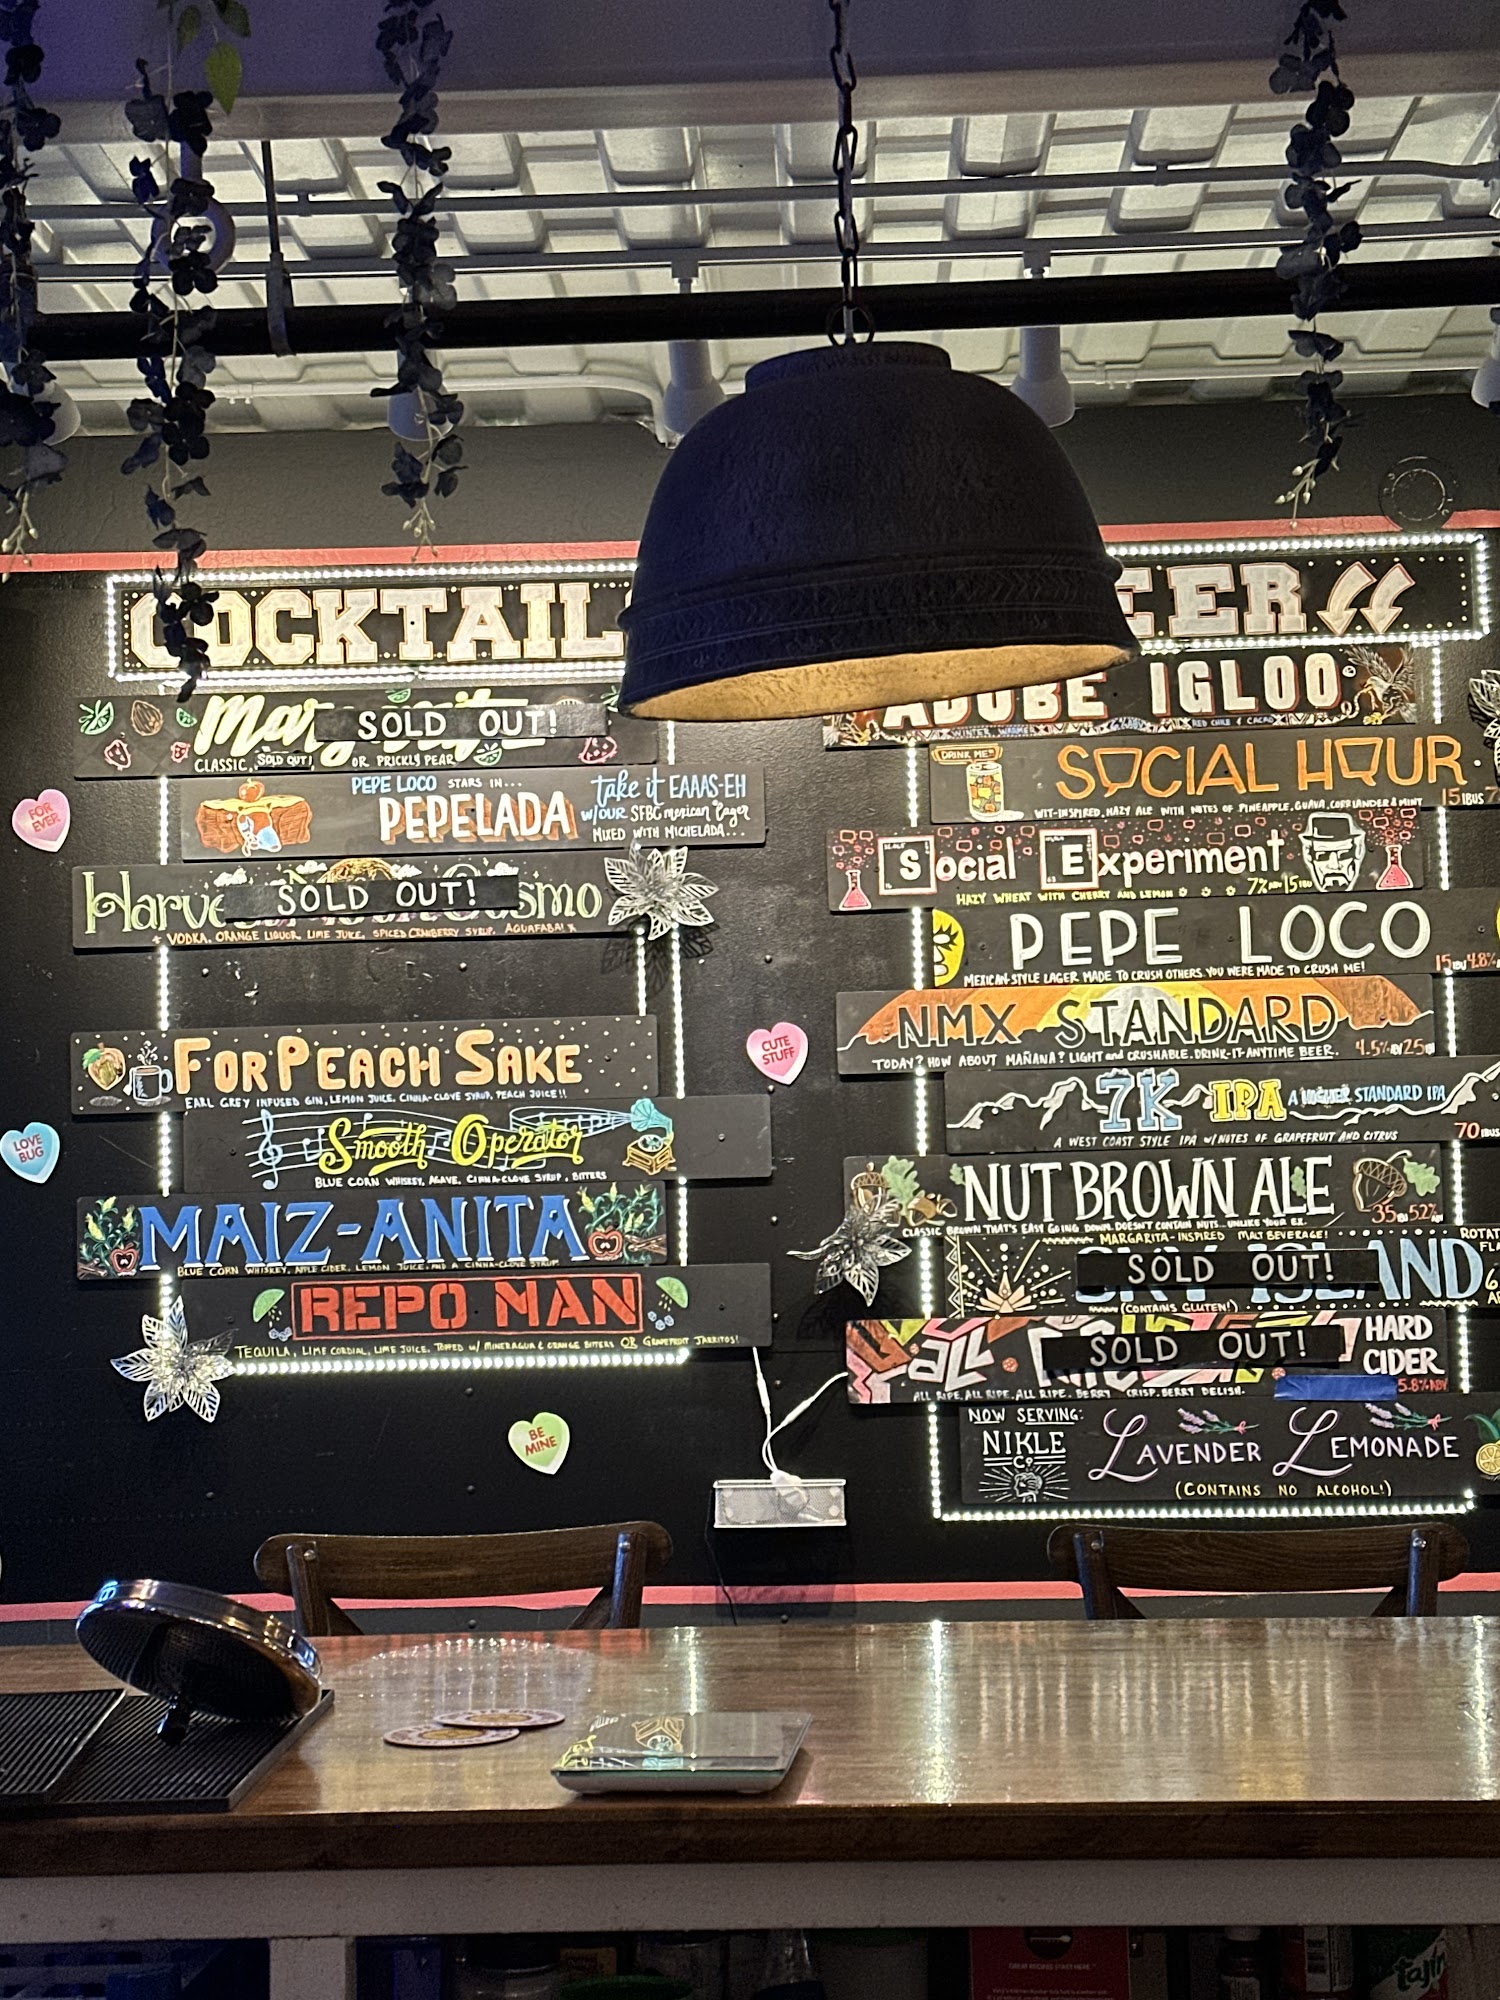 COCKTAIL
SOLD OUT!
CLASSIC, SOLD OUT! OR PRICKLY PEAR
PEPE LOCO STARS IN...
PEPELADA
take it EAAAS-EH
w/OUR SFBC mexican lager
MIXED WITH MICHELADA...
SOLD OUT!
VODKA, ORANGE LIQUOR, LIME JUICE, SPICED CRANBERRY SYRUP, AQUAFABA!
FOR PEACH SAKE
EARL GREY INFUSED GIN, LEMON JUICE, CINNA-CLOVE SYRUP, PEACH JUICE!!
Smooth Operator
BLUE CORN WHISKEY, AGAVE, CINNA-CLOVE SYRUP, BITTERS
MAIZ-ANITA
BLUE CORN WHISKEY, APPLE CIDER, LEMON JUICE, AND A CINNA-CLOVE SYRUP
REPO MAN
TEQUILA, LIME CORDIAL, LIME JUICE, TOPPED W/ MINERAGUA & ORANGE BITTERS OR GRAPEFRUIT JARRITOS!
FOR EVER
LOVE BUG
CUTE STUFF
BE MINE
EER
ADOBE IGLOO
WINTER WARMER RED CHILE & CACAO
DRINK ME
SOCIAL HOUR
WIT-INSPIRED, HAZY ALE WITH NOTES OF PINEAPPLE, GUAVA, CORRIANDER & MINT
15 IBUS
Social Experiment
HAZY WHEAT WITH CHERRY AND LEMON 7% ABV 15 IBU
PEPE LOCO
MEXICAN-STYLE LAGER MADE TO CRUSH OTHERS. YOU WERE MADE TO CRUSH ME!
15 IBU 4.8%
NMX STANDARD
TODAY? HOW ABOUT MAÑANA? LIGHT and CRUSHABLE. DRINK-IT-ANYTIME BEER. 4.5% ABV 25 IBU
7K IPA A HIGHER STANDARD IPA
A WEST COAST STYLE IPA w/NOTES OF GRAPEFRUIT AND CITRUS
70 IBUS
NUT BROWN ALE
CLASSIC BROWN THAT'S EASY GOING DOWN. DOESN'T CONTAIN NUTS... UNLIKE YOUR EX.
35 IBU 5.2% ABV
MARGARITA-INSPIRED MALT BEVERAGE!
SKY ISLAND
SOLD OUT!
(CONTAINS GLUTEN!)
SOLD OUT!
HARD CIDER
5.8% ABV
ALL RIPE, ALL RIPE, ALL RIPE. BERRY CRISP. BERRY DELISH.
NOW SERVING:
NIKLE Co
LAVENDER LEMONADE
(CONTAINS NO ALCOHOL!)